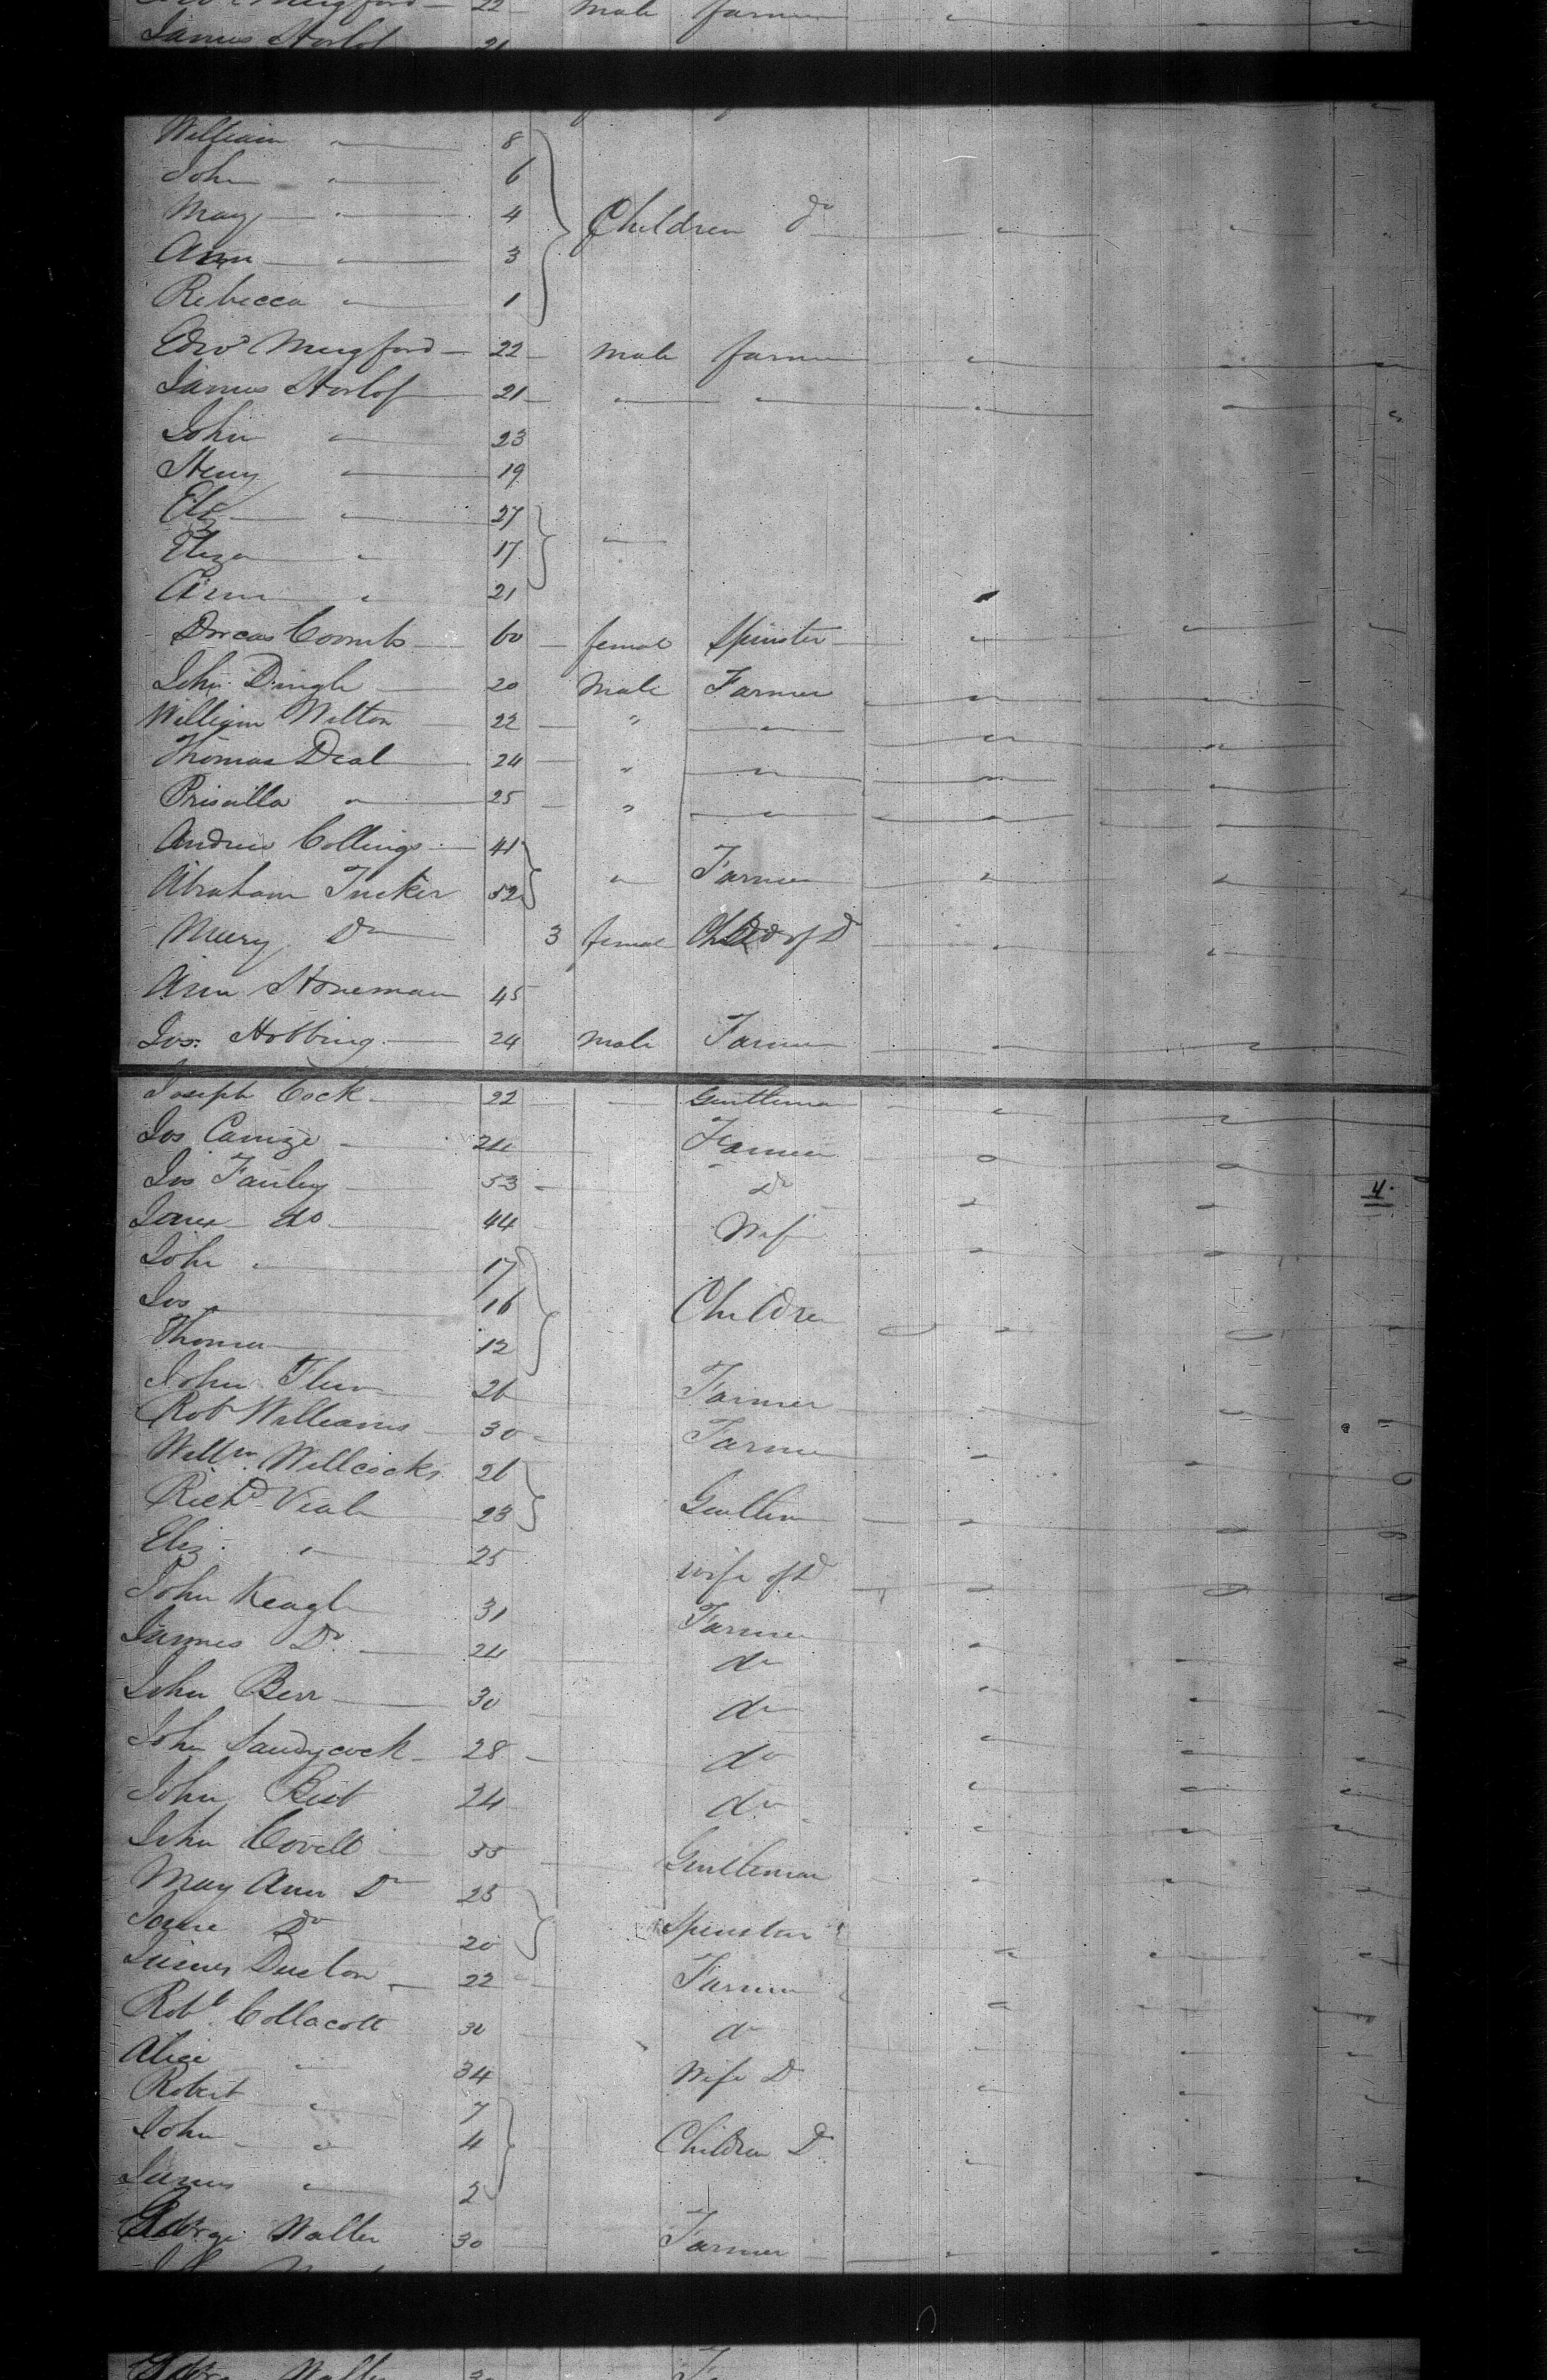 22 male farmer
James
William " 8
John " 6
Mary " 4 Children Do
Ann " 3
Rebecca " 1
Edwd Mugford 22 male farmer
James 21 " "
John " 23
Henry " 19
Eliz " 27
Eliza " 17 "
Ann " 21
Dorcas Coombs 60 female Spinster
John Dingle 20 Male Farmer
William Wilton 22 " "
Thomas Deal 24 " "
Priscilla " 25 " "
Andrew Collings 41
Abraham Tucker 52 " Farmer
Mary Do 3 female Child of Do
Ann Stoneman 45
Jos: Hobbing 24 male Farmer
Joseph Cock 22 Gentleman
Jos 24 Farmer
Jos 53 Do
4.
Jane do 44 Wife
John " 17
Jos " 16 Children
Thomas 12
John 26 Farmer
Robt Williams 30 Farmer
Willm Willcocks 26
Richd Veale 23 Gentlem
Eliz: " 25 wife of Do
John Keagle 31 Farmer
James Do 24 do
John 30 do
John Sandycock 28 do
John 24 do
John Covell 55 Gentleman
Mary Ann Do 25
Jane Do 20 Spinster
James 22 Farmer
Robt Collacott 30 do
Alice " 34 Wife Do
Robert " 7
John " 4 Children Do
James " 2
George Waller 30 Farmer